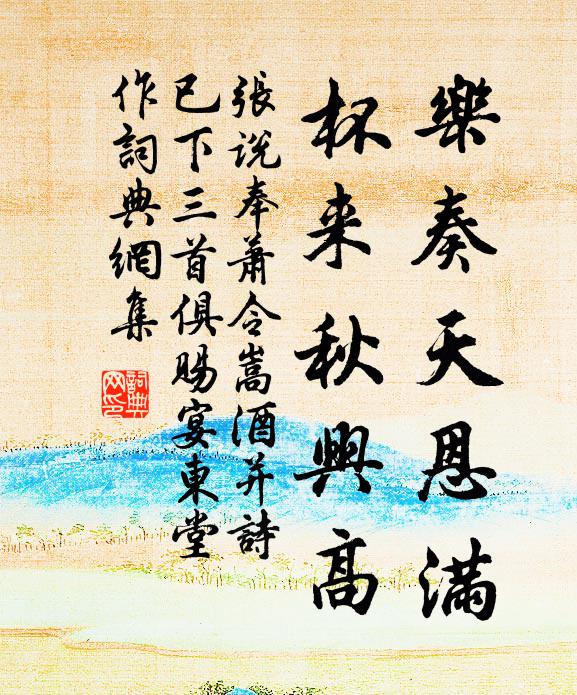 樂奏天恩滿
杯来秋興高
張說奉蕭令嵩酒并詩
已下三首俱賜宴東堂
作詞典網集
詞典
网印